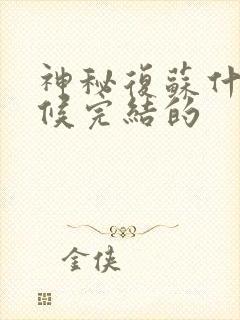 神秘復蘇什
候完結的
金俠